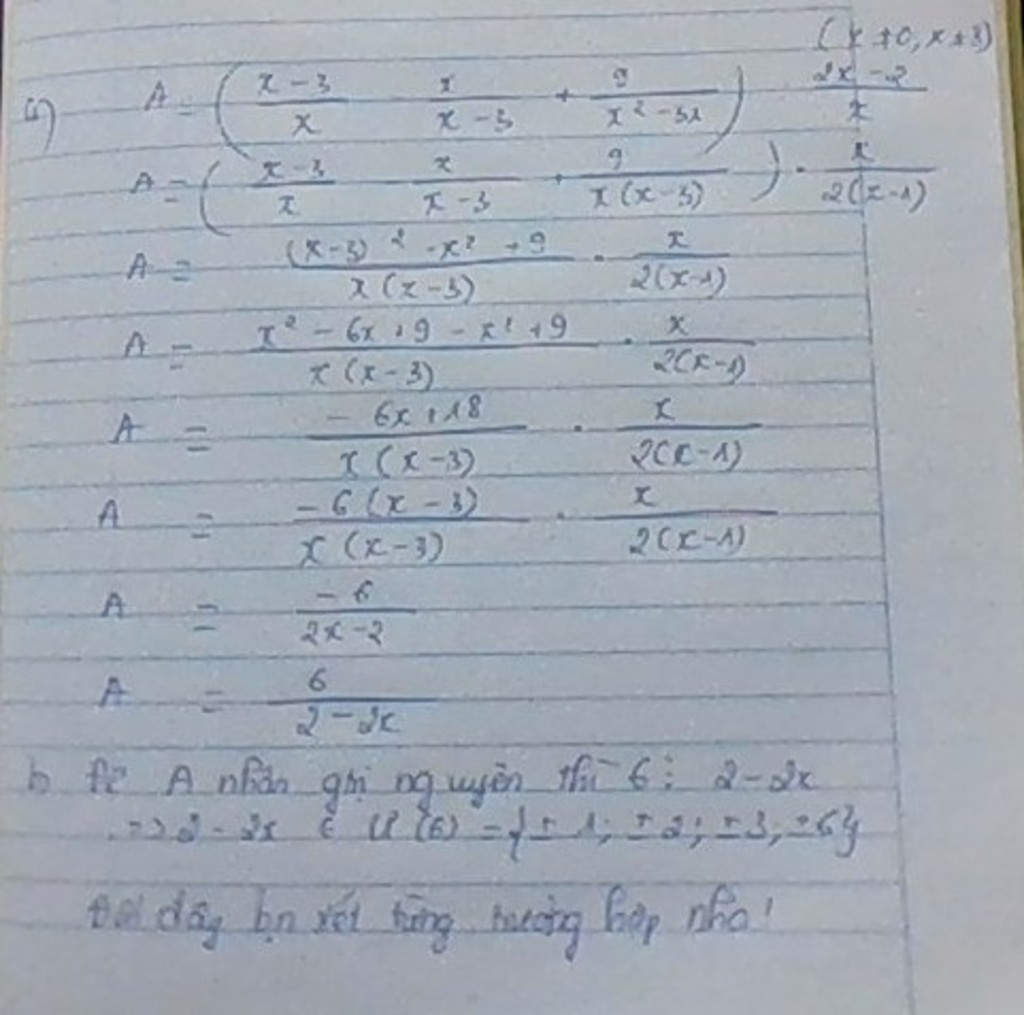 (x ≠ 0, x ≠ 3)
a) A = ( (x - 3)/x  x/(x - 3) + 9/(x² - 3x) ) (2x - 2)/x
A = ( (x - 3)/x  x/(x - 3) + 9/(x(x - 3)) ) . x/(2(x - 1))
A = ((x - 3)² - x² + 9)/(x(x - 3)) . x/(2(x - 1))
A = (x² - 6x + 9 - x² + 9)/(x(x - 3)) . x/(2(x - 1))
A = (- 6x + 18)/(x(x - 3)) . x/(2(x - 1))
A = (- 6(x - 3))/(x(x - 3)) . x/(2(x - 1))
A = (- 6)/(2x - 2)
A = 6/(2 - 2x)
b Để A nhân gtrị nguyên thì 6 ⋮ 2 - 2x
=> 2 - 2x ∈ Ư(6) = {± 1; ± 2; ± 3; ± 6}
đây bn xét từng trường hợp nha!